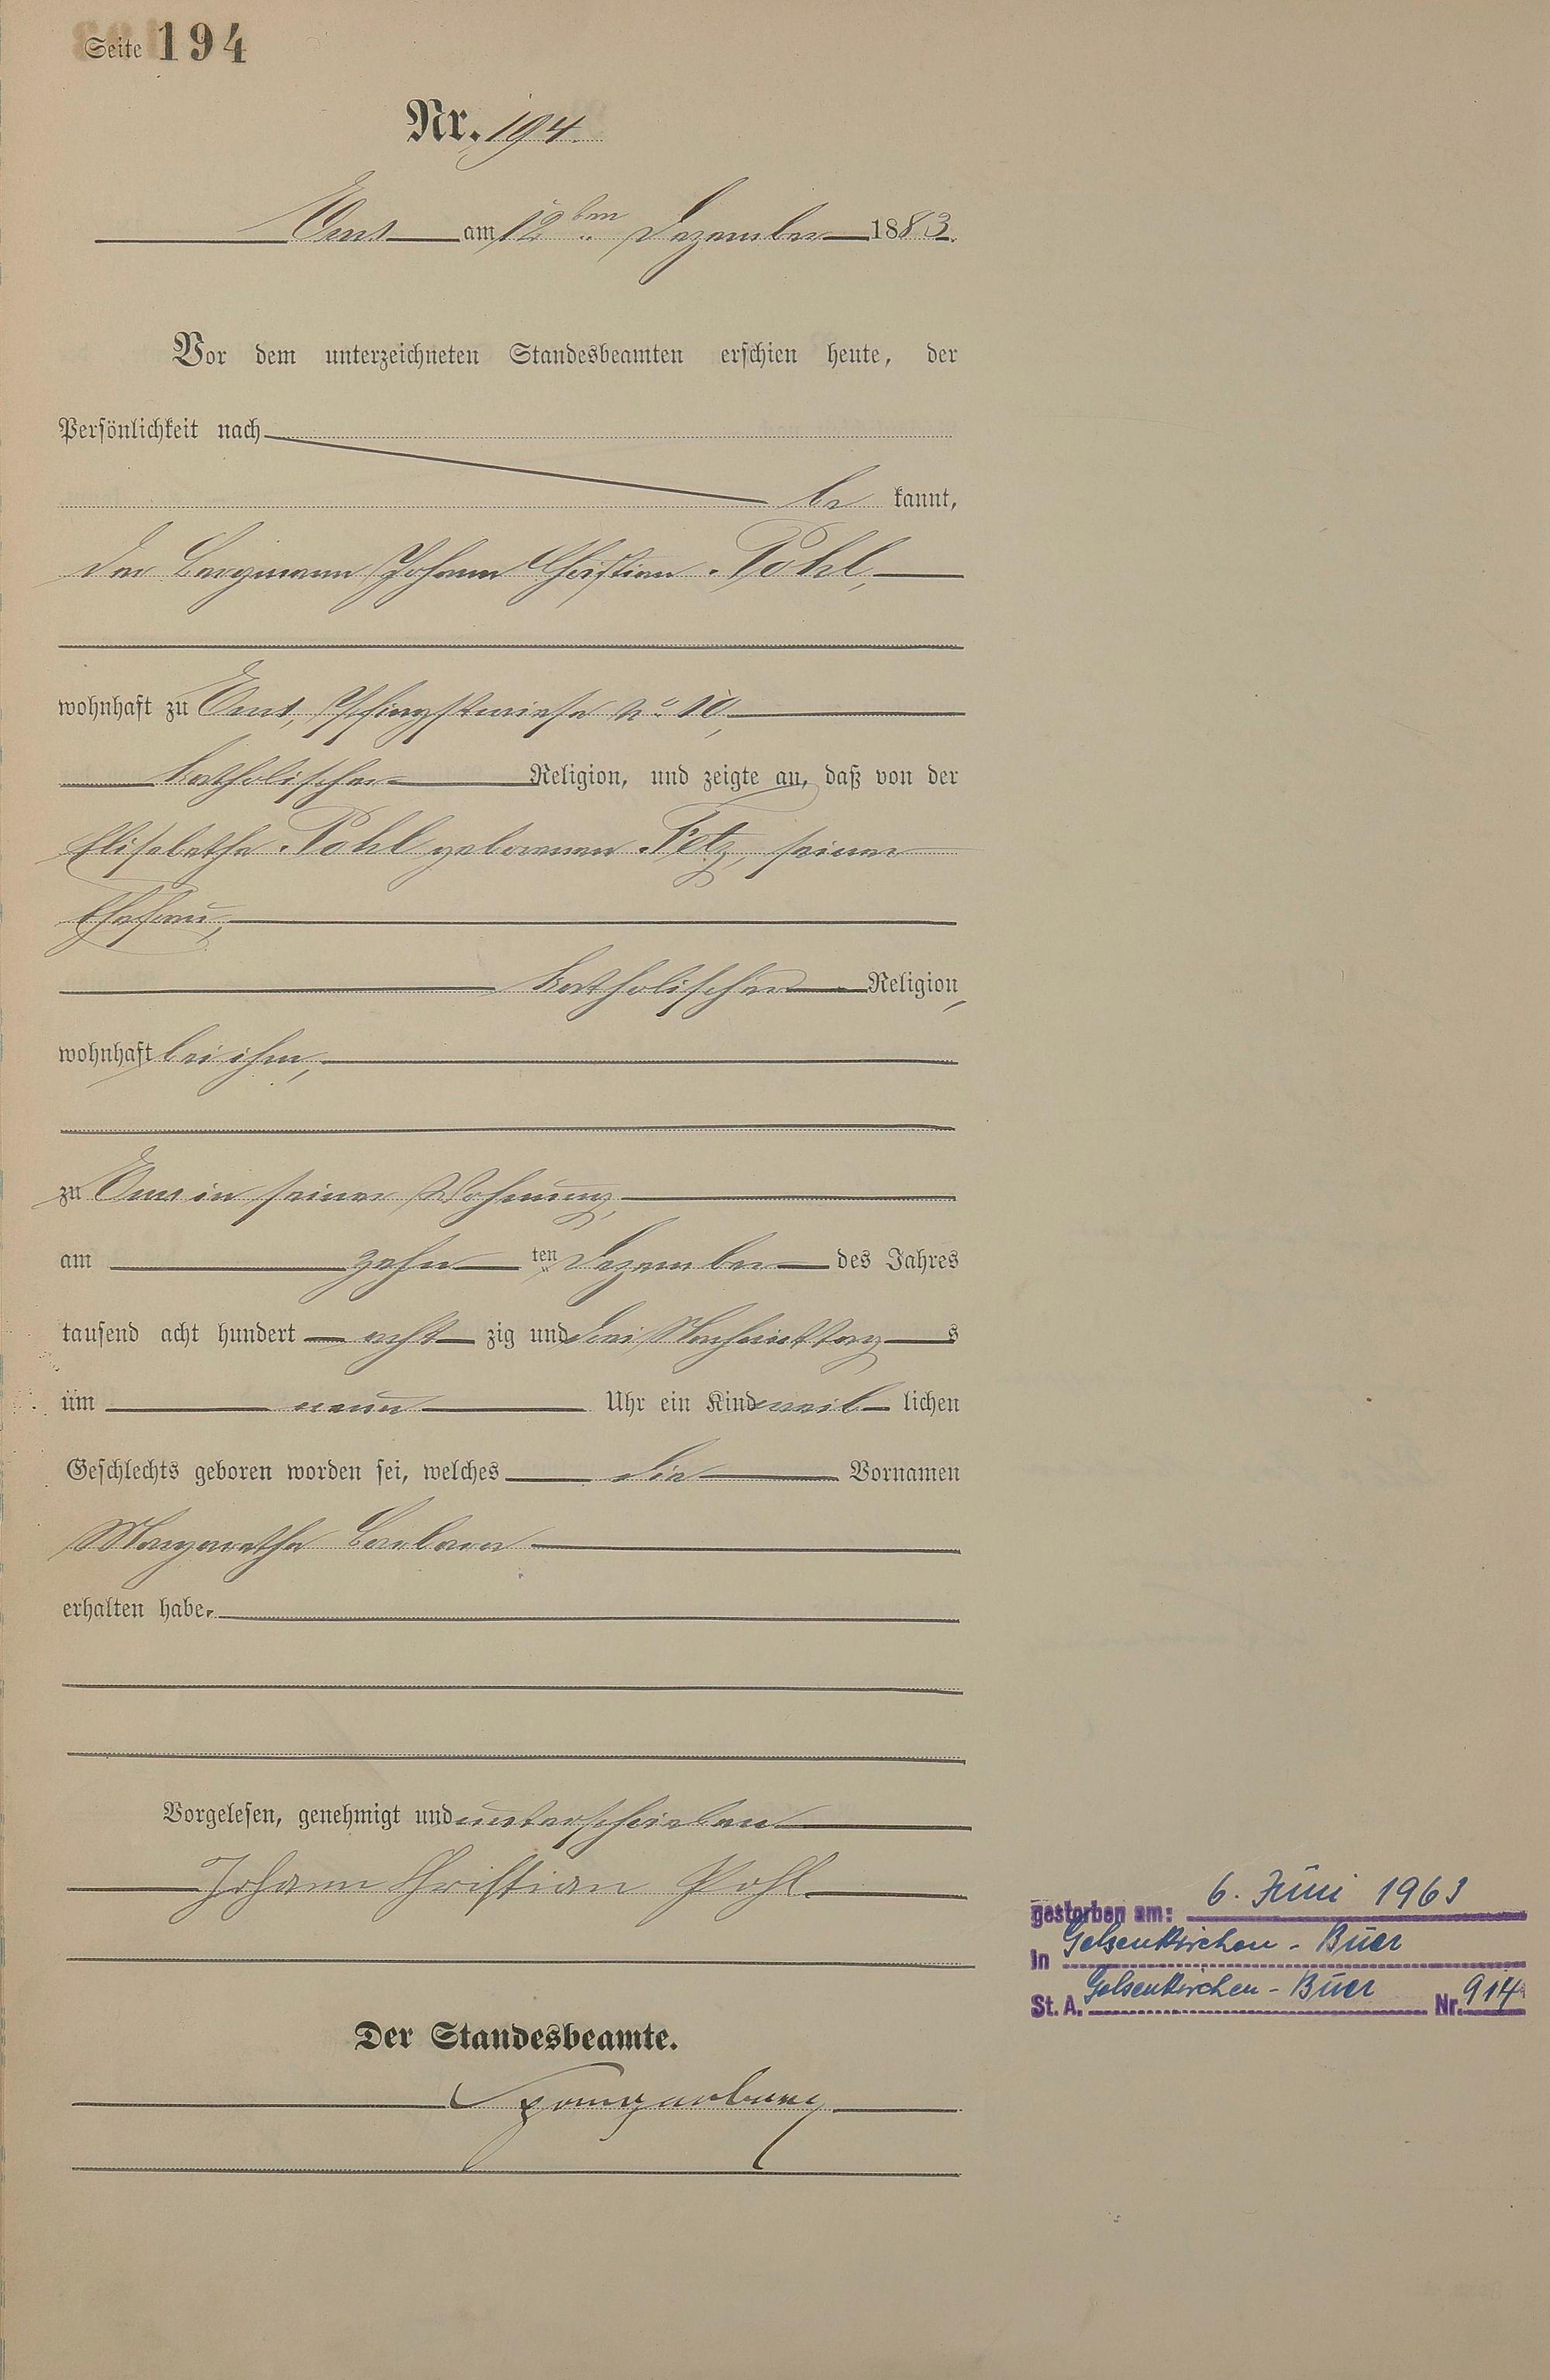 Seite 194
Nr. 194.
Ems am 12ten Dezember 1883.
Vor dem unterzeichneten Standesbeamten erschien heute, der
Persönlichkeit nach
be kannt,
der Bergmann Johann Christian Pohl,
wohnhaft zu Ems, Pfingstwiese No 10,
katholischer Religion, und zeigte an, daß von der
Elisabetha Pohl geborenen Fetz, seiner
Ehefrau,
katholischer Religion,
wohnhaft bei ihm,
zu Ems in seiner Wohnung,
am zehn ten Dezember des Jahres
tausend acht hundert acht zig und drei Nachmittag s
um neun Uhr ein Kind weib lichen
Geschlechts geboren worden sei, welches die Vornamen
Margaretha Barbara
erhalten habe.
Vorgelesen, genehmigt und unterschrieben
Johann Christian Pohl
Der Standesbeamte.
gestorben am: 6. Juni 1963
in Gelsenkirchen - Buer
St. A. Gelsenkirchen - Buer Nr. 914